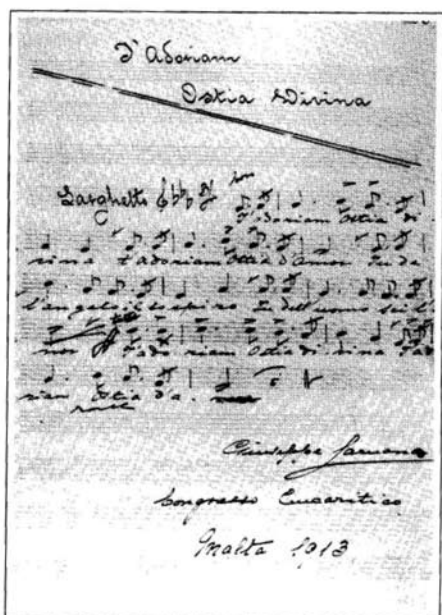 T'Adoriam
Ostia Divina
Larghetto
T'adoriam Ostia di
vina t'adoriam Ostia d'amor Tu de
l'angelo il sospiro Tu dell'uomo sei l'
nor T'ado riam Ostia di vina t'ad
riam Ostia d'a
Giuseppe Caruana
Congresso Eucaristico
Malta 1913